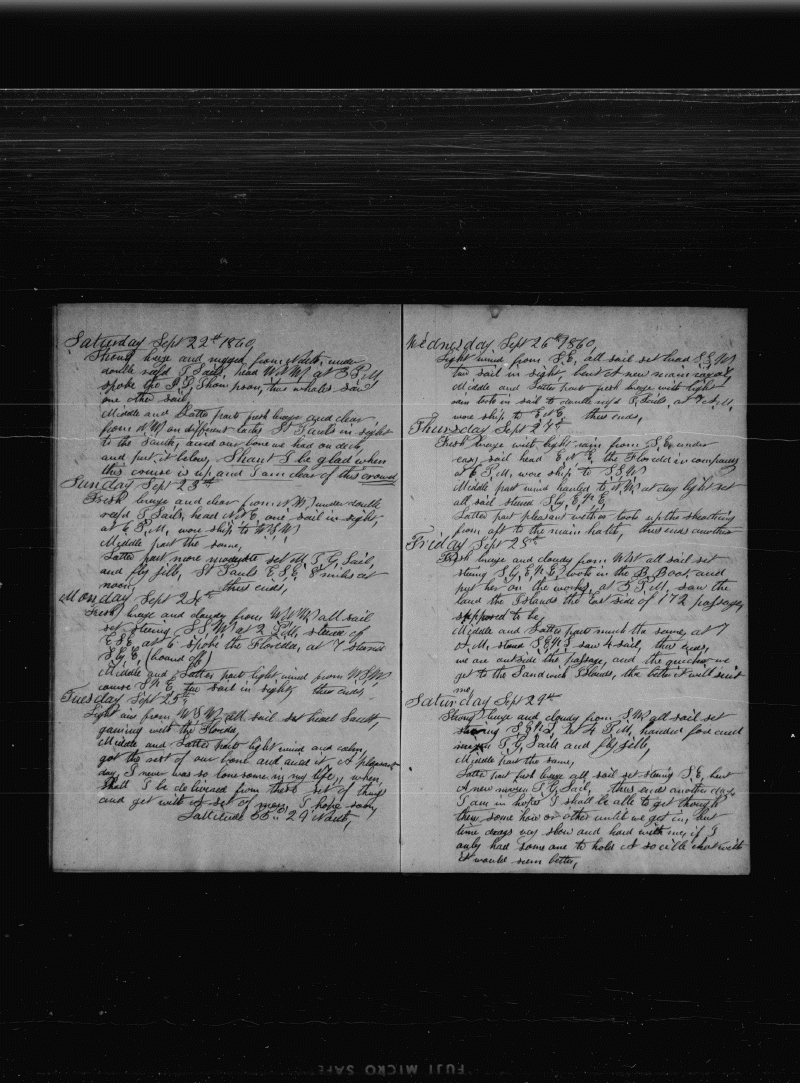 Saturday Sept 22nd 1860,
Strong breeze and rugged from North, under
double reef'd T. Sails, head W N W, at 3 P.M.
spoke the J. D. Thompson, two whales saw
one other sail,
Middle and Latter parts fresh breeze and clear
from N W on different tacks, St Pauls in sight
to the South, and our bone we had on deck,
and put it below, Shant I be glad when
this course is up and I am clear of this crowd
Sunday Sept 23rd
Fresh breeze and clear from N W, under double
reef'd T. Sails, head N E, one sail in sight,
at 6 P.M. wore ship to W S W
Middle part the same,
Latter part more moderate set M. T. G. Sail,
and fly jibb, St Pauls E.S.E. 8 miles at
noon thus ends,
Monday Sept 24th
Fresh breeze and cloudy from W N W, all sail
set steering S.S.W, at 2 P.M, steered off
E.S.E. at 6 spoke the Florida, at 7 steered
S by E, (bound off)
Middle and Latter part light wind from W.S.W,
course S.E. two sail in sight, thus ends,
Tuesday Sept 25th
Light airs from W S W all sail set head South,
gaming with the Florida,
Middle and Latter parts light wind and calm,
got the rest of our bone and it A pleasant
day, I never was so lonesome in my life, when
shall I be delivered from these set of things
and get with A set of men, I hope soon,
Lattitude 55° 29 North,
Wednesday Sept 26th 1860,
Light wind from S.E, all sail set head S.S.W
two sail in sight, bent A new main royal
Middle and Latter parts fresh breeze with light
rain took in sail to double reef'd T. Sails, at 7 A.M,
wore ship to E N E thus ends,
Thursday Sept 27th
Fresh breeze with light rain from S.E, under
easy sail head E N E, the Florida in company
at 6 P.M. wore ship to S.S.W
Middle part wind hauled to N W at day light set
all sail steered S by E ½ E
Latter part pleasant weather took up the sheathing
from aft to the main hatch, thus ends another
Friday Sept 28th
Fresh breeze and cloudy from West all sail set
steering S by E ½ E, took in the B. Boat, and
put her on the works, at 5 P.M, saw the
land the Islands the East side of 172 passage
supposed to be,
Middle and Latter parts much the same, at 7
A.M, steered S.E saw 4 sail, thus ends,
we are outside the passage, and the quicker we
get to the Sandwich Islands, the better it will suit
me,
Saturday Sept 29th
Strong breeze and cloudy from S.W, all sail set
steering S.E, at 4 P.M, handed fore and
mizen T. G. Sails and fly jibb,
Middle part the same,
Latter part fresh breeze all sail set steering S.E, bent
A new mizen T. G. Sail, thus ends another day,
I am in hopes I shall be able to get through
them some how or other until we get in, but
time drags very slow and hard with me, if I
only had some one to hold A sociable chat with
it would seem better,
FUJI MICRO SAFE